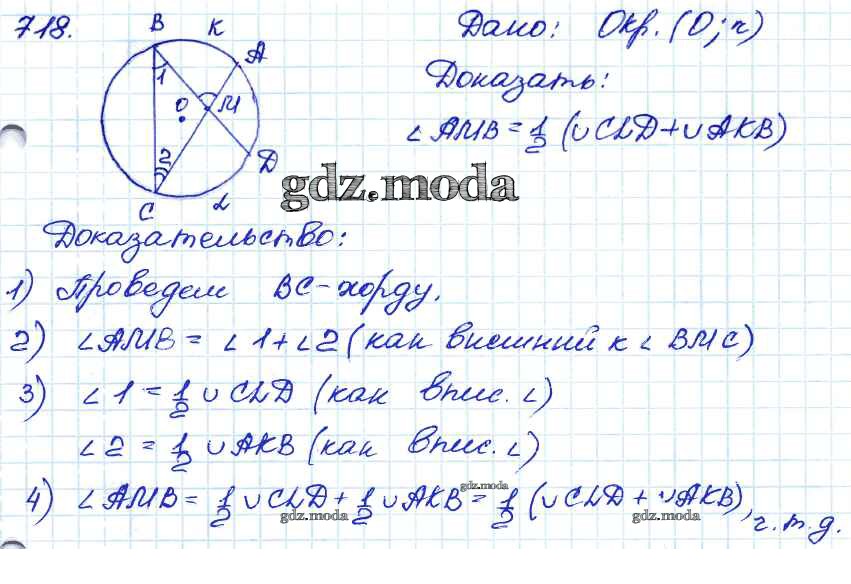 718.
B K A
1 O M
2 D
C L
Дано: Окр. (O; r)
Доказать:
∠ AMB = 1/2 (∪CLD + ∪AKB)
gdz.moda
Доказательство:
1) Проведем BC - хорду.
2) ∠AMB = ∠1 + ∠2 (как внешний к ∠ BMC)
3) ∠1 = 1/2 ∪CLD (как впис. ∠)
∠2 = 1/2 ∪AKB (как впис. ∠)
gdz.moda
4) ∠AMB = 1/2 ∪CLD + 1/2 ∪AKB = 1/2 (∪CLD + ∪AKB), ч.т.д.
gdz.moda gdz.moda